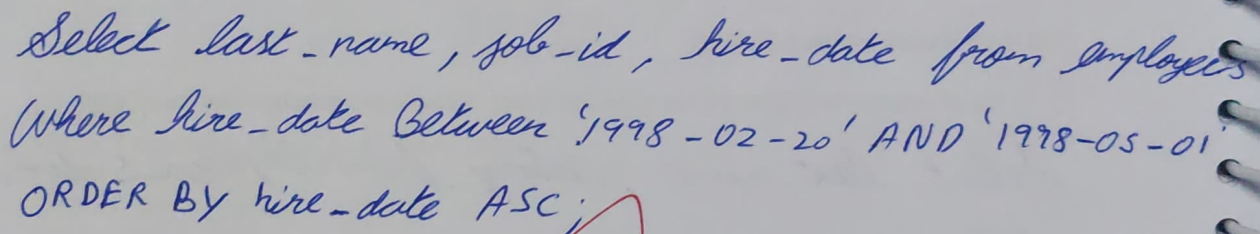 Select last_name, job_id, hire_date from employees
Where hire_date Between '1998-02-20' AND '1998-05-01'
ORDER BY hire_date ASC;